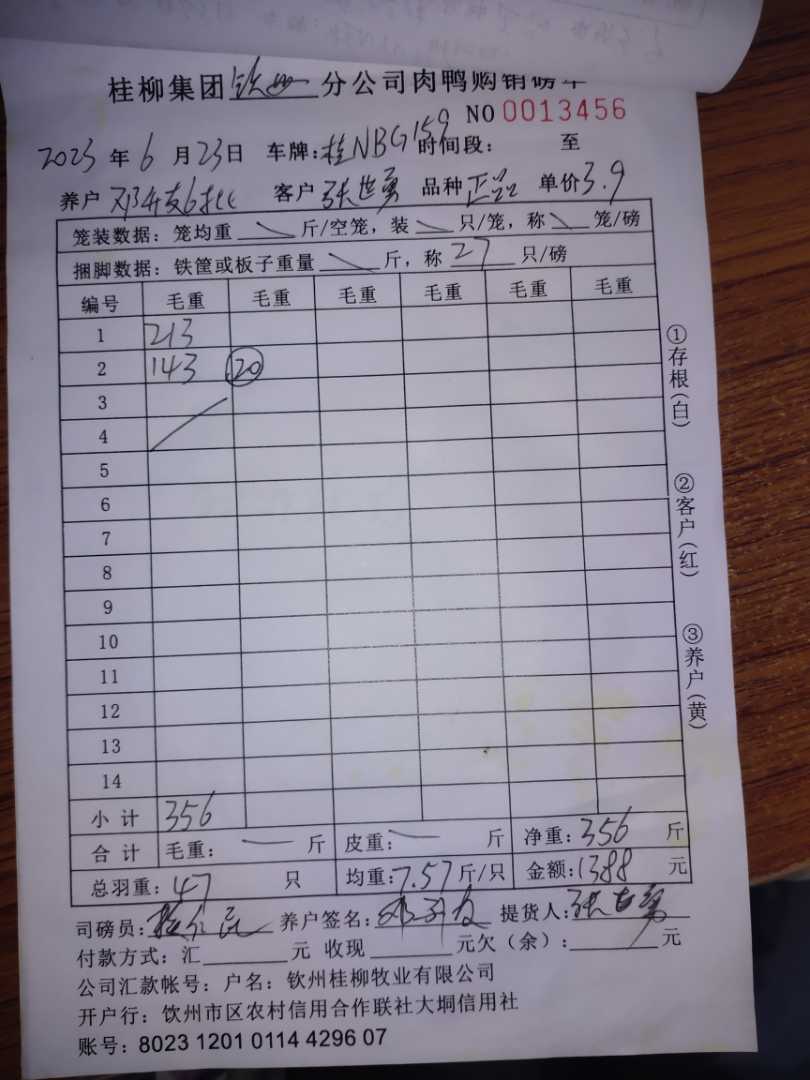 桂柳集团钦州分公司肉鸭购销磅单
NO 0013456
2023年6月23日 车牌:桂NBG159 时间段: 至
养户 邓 6批 客户 张世勇 品种 正品 单价 3.9
笼装数据: 笼均重 斤/空笼, 装 只/笼, 称 笼/磅
捆脚数据: 铁筐或板子重量 斤, 称 27 只/磅
编号 毛重 毛重 毛重 毛重 毛重 毛重
1 213
2 143 20
3
4
5
6
7
8
9
10
11
12
13
14
小计 356
合计 毛重: 斤 皮重: 斤 净重: 356 斤
总羽重: 47 只 均重: 7.57 斤/只 金额: 1388 元
司磅员: 养户签名: 提货人: 张世勇
付款方式: 汇 元 收现 元欠(余): 元
公司汇款帐号: 户名: 钦州桂柳牧业有限公司
开户行: 饮州市区农村信用合作联社大垌信用社
账号: 8023 1201 0114 4296 07
①存根(白)
②客户(红)
③养户(黄)